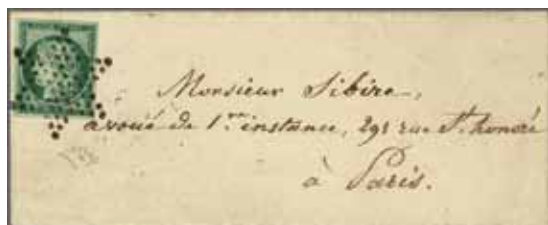 Monsieur Sibire,
avoué de 1.re instance, 291 rue St. honoré
à Paris.